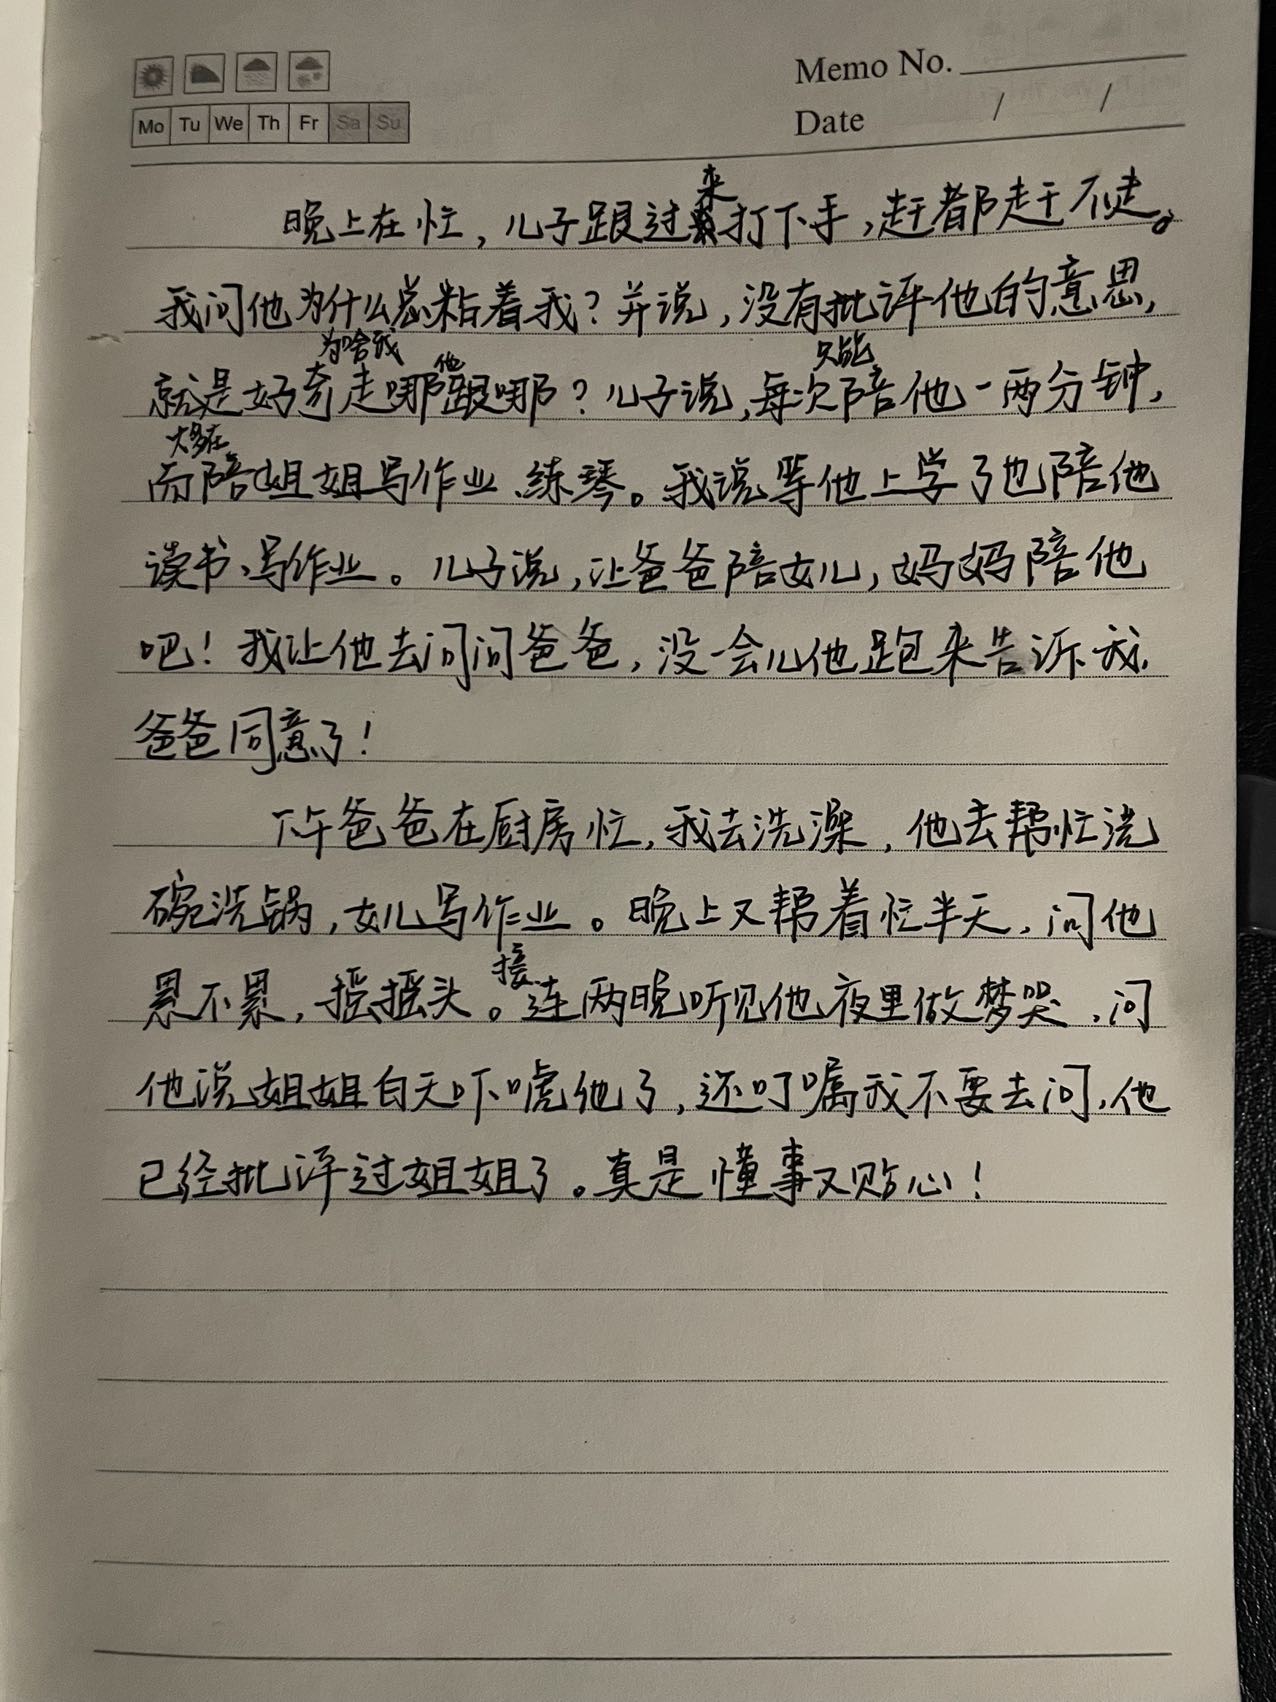 Memo No.
Mo Tu We Th Fr Sa Su
Date / /
晚上在忙，儿子跟过来打下手，赶都赶不走。
我问他为什么总粘着我？并说，没有批评他的意思，
就是好奇为啥我走哪他跟哪？儿子说，每次只能陪他一两分钟，
而大多在陪姐姐写作业、练琴。我说等他上学了也陪他
读书、写作业。儿子说，让爸爸陪女儿，妈妈陪他
吧！我让他去问问爸爸，没一会儿他跑来告诉我，
爸爸同意了！
下午爸爸在厨房忙，我去洗澡，他去帮忙洗
碗洗锅，女儿写作业。晚上又帮着忙半天，问他
累不累，摇摇头。接连两晚听见他夜里做梦哭，问
他说姐姐白天吓唬他了，还叮嘱我不要去问，他
已经批评过姐姐了。真是懂事又贴心！